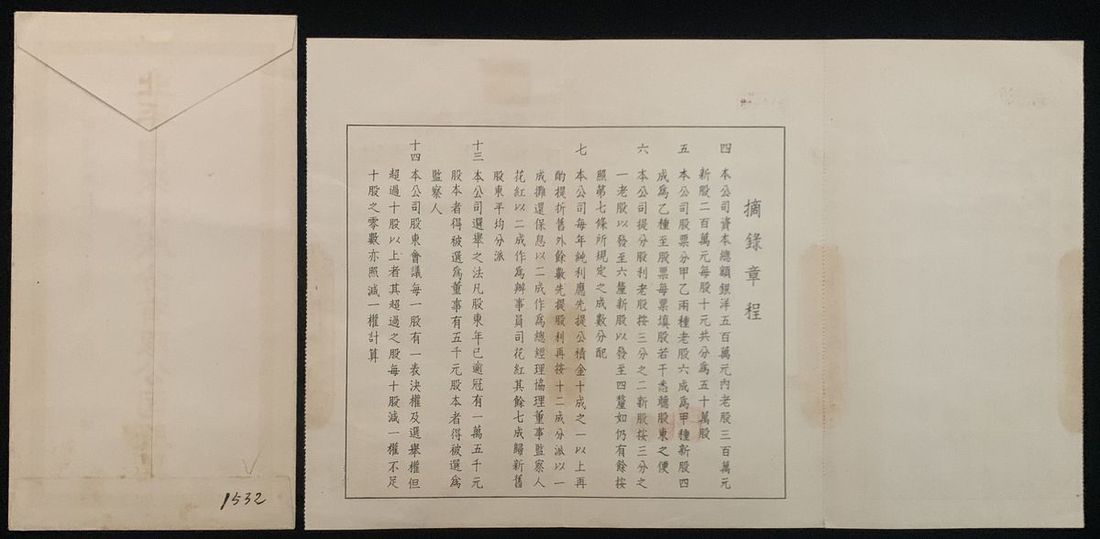 摘錄章程
四 本公司資本總額銀洋五百萬元內老股三百萬元
新股二百萬元每股十元共分為五十萬股
五 本公司股票分甲乙兩種老股六成為甲種新股四
成為乙種至股票每票填股若干悉聽股東之便
六 本公司提分股利老股按三分之二新股按三分之
一老股以發至六釐新股以發至四釐如仍有餘按
照第七條所規定之成數分配
七 本公司每年純利應先提公積金十成之一以上再
酌提折舊外餘數先提股利再按十二成分派以一
成攤還保息以二成作為總經理協理董事監察人
花紅以二成作為辦事員司花紅其餘七成歸新舊
股東平均分派
十三 本公司選舉之法凡股東年已逾冠有一萬五千元
股本者得被選為董事有五千元股本者得被選為
監察人
十四 本公司股東會議每一股有一表決權及選舉權但
超過十股以上者其超過之股每十股減一權不足
十股之零數亦照減一權計算
1532